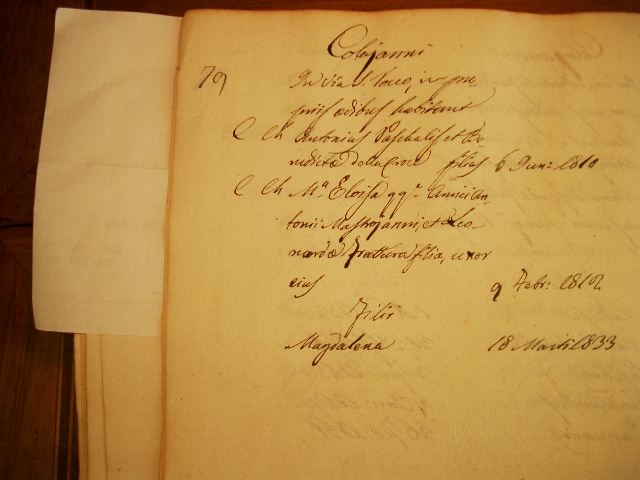 Colajanni
79 In via S. Voco, in pro
priis ædibus habitant
C Ch Antonius Paschalis et Be
nedictæ della Croce filius 6 Jun: 1810
C Ch Mª Eloisa qqm Amici An
tonii Mastrojanni, et Leo
nardæ Frattura filia, uxor
eius 9 Febr: 1812
Filii
Magdalena 18 Martii 1833